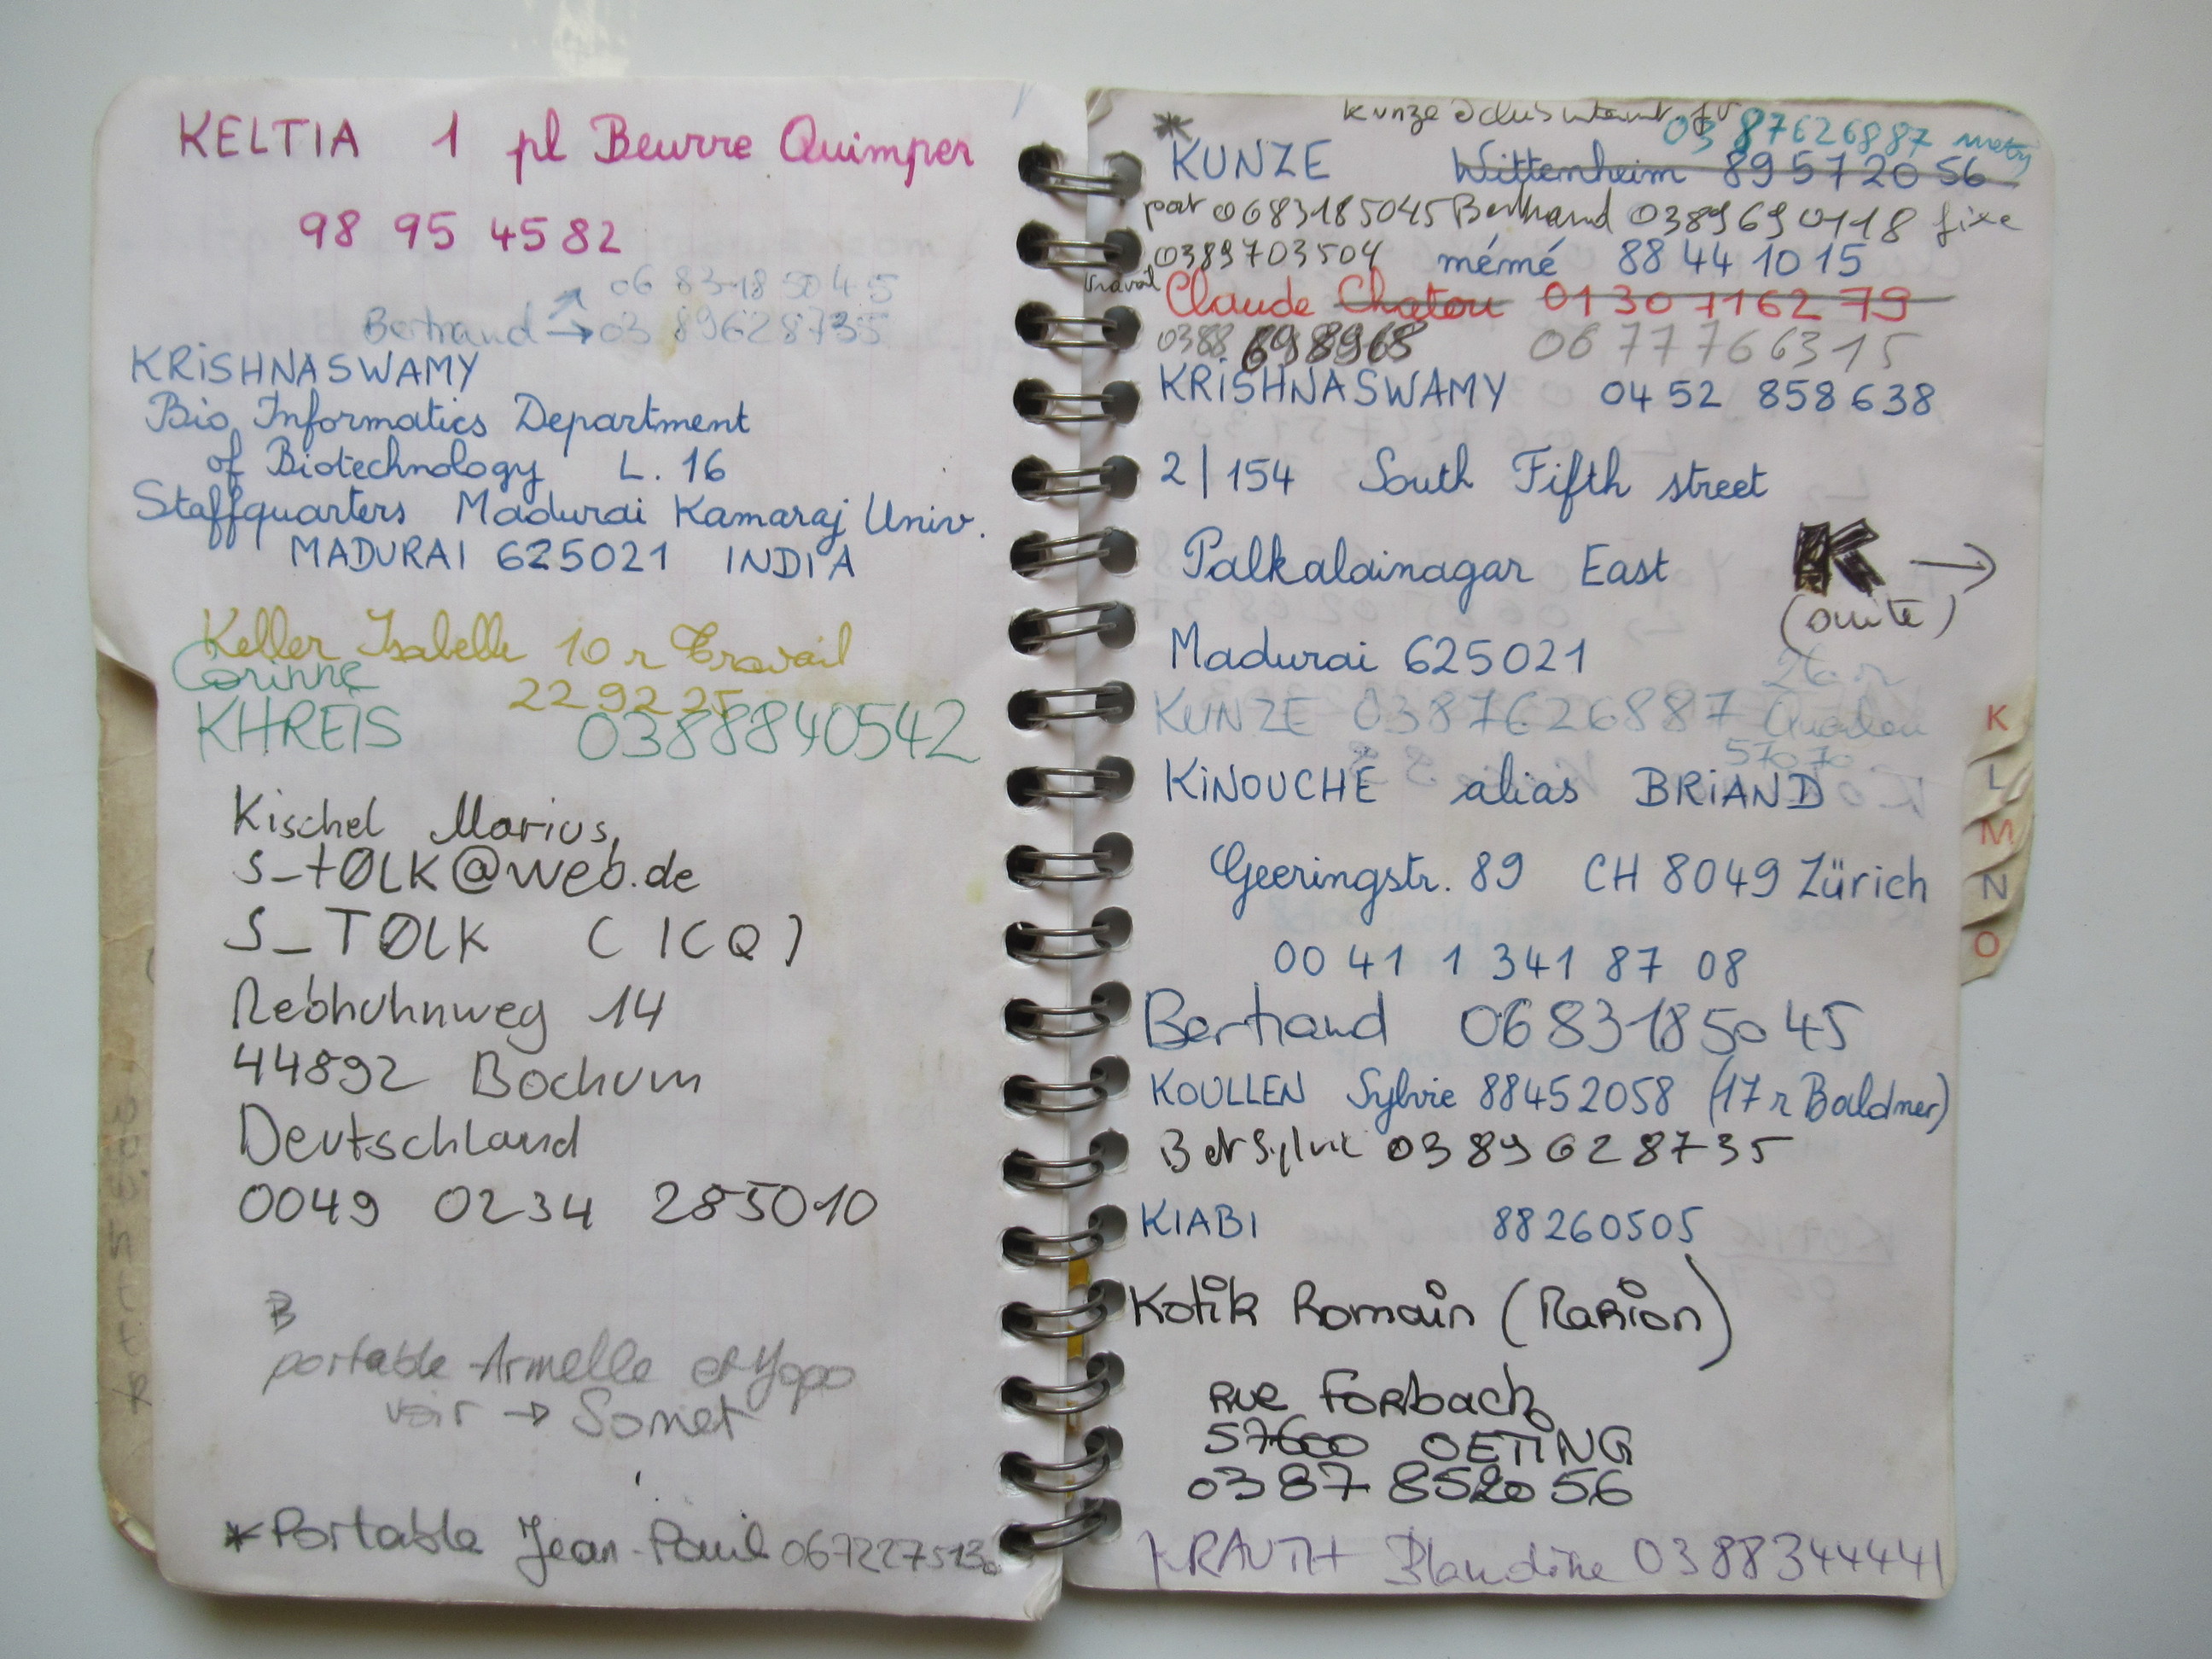 KELTIA 1 pl Beurre Quimper
98 95 45 82
06 83 18 50 45
Bertrand → 03 89628735
KRiSHNASWAMY
Bio Informatics Department
of Biotechnology L. 16
Staffquarters Madurai Kamaraj Univ.
MADURAI 625021 INDIA
Keller Isabelle 10 r Travail
22 92 25
Corinne
KHREIS 0388840542
Kischel Marius,
S_tØLK@web.de
S_TØLK (ICQ)
Rebhuhnweg 14
44892 Bochum
Deutschland
0049 0234 285010
B
portable Armelle et Yopo
voir → Somet
*Portable Jean-Paul 0672275130
*
03 87626887 metz
KUNZE Wittenheim 89 57 20 56
port 0683185045 Bertrand 0389690118 fixe
0389703504 mémé 88 44 10 15
travail
Claude Chatou 01 30 71 62 79
0388 698968 06 77766315
KRiSHNASWAMY 04 52 858 638
2/154 South Fifth street
Palkalainagar East
K →
(suite)
Madurai 625021
26 r
KUNZE 0387626887
57070
KiNOUCHE alias BRiAND
Geeringstr. 89 CH 8049 Zürich
00 41 1 341 87 08
Bertrand 06 83185045
KOULLEN Sylvie 88452058 (17 r Baldner)
B et Sylvie 03 89 62 87 35
KIABI 88260505
Kotik Romain (Marion)
Rue Forbach
57600 OETING
03 87 852056
KRAUTH Blandine 0388344441
K
L
M
N
O